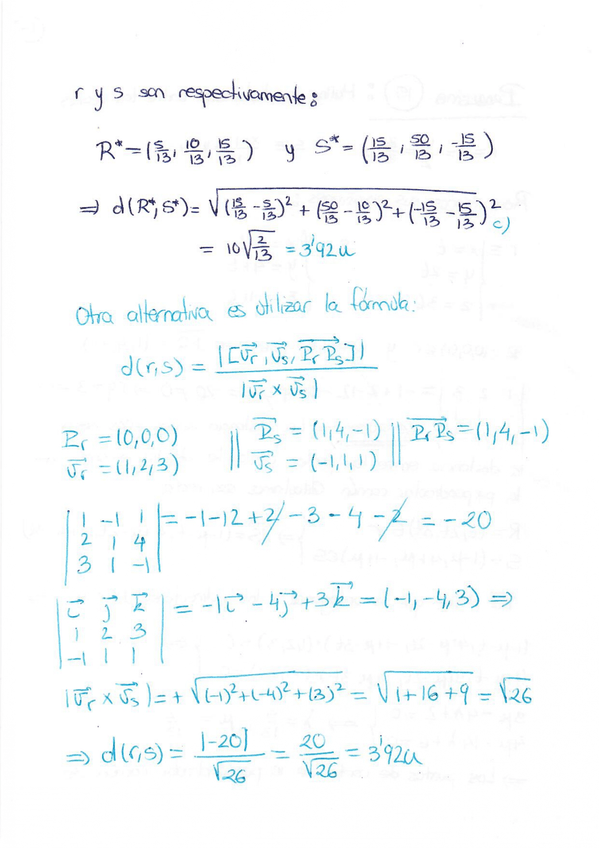 r y s son respectivamente:
R* = (5/13, 10/13, 15/13) y S* = (15/13, 50/13, -15/13)
⇒ d(R*,S*) = √((15/13 - 5/13)² + (50/13 - 10/13)² + (-15/13 - 15/13)²) c)
= 10√(2/13) = 3'92u
Otra alternativa es utilizar la fórmula:
d(r,s) = |[v⃗r, v⃗s, PrPs⃗]| / |v⃗r × v⃗s|
Pr = (0,0,0) || Ps = (1,4,-1) || PrPs⃗ = (1,4,-1)
v⃗r = (1,2,3) || v⃗s = (-1,1,1)
|1 -1 1| = -1-12+2-3-4-2 = -20
|2 1 4|
|3 1 -1|
|i⃗ j⃗ k⃗| = -1i⃗ - 4j⃗ + 3k⃗ = (-1,-4,3) ⇒
|1 2 3|
|-1 1 1|
|v⃗r × v⃗s| = +√((-1)²+(-4)²+(3)²) = √(1+16+9) = √26
⇒ d(r,s) = |-20|/√26 = 20/√26 = 3'92u